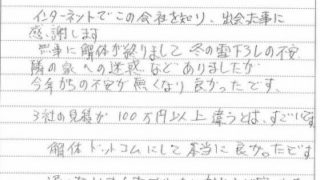 インターネットでこの会社を知り、出会た事に
感謝します
無事に解体が終りまして 冬の雪下しの不安
隣の家への迷惑などありましたが
今年からの不安が無くなり良かったです。
3社の見積が100万円以上違うとは、すごいです
解体ドットコムにして本当に良かったです